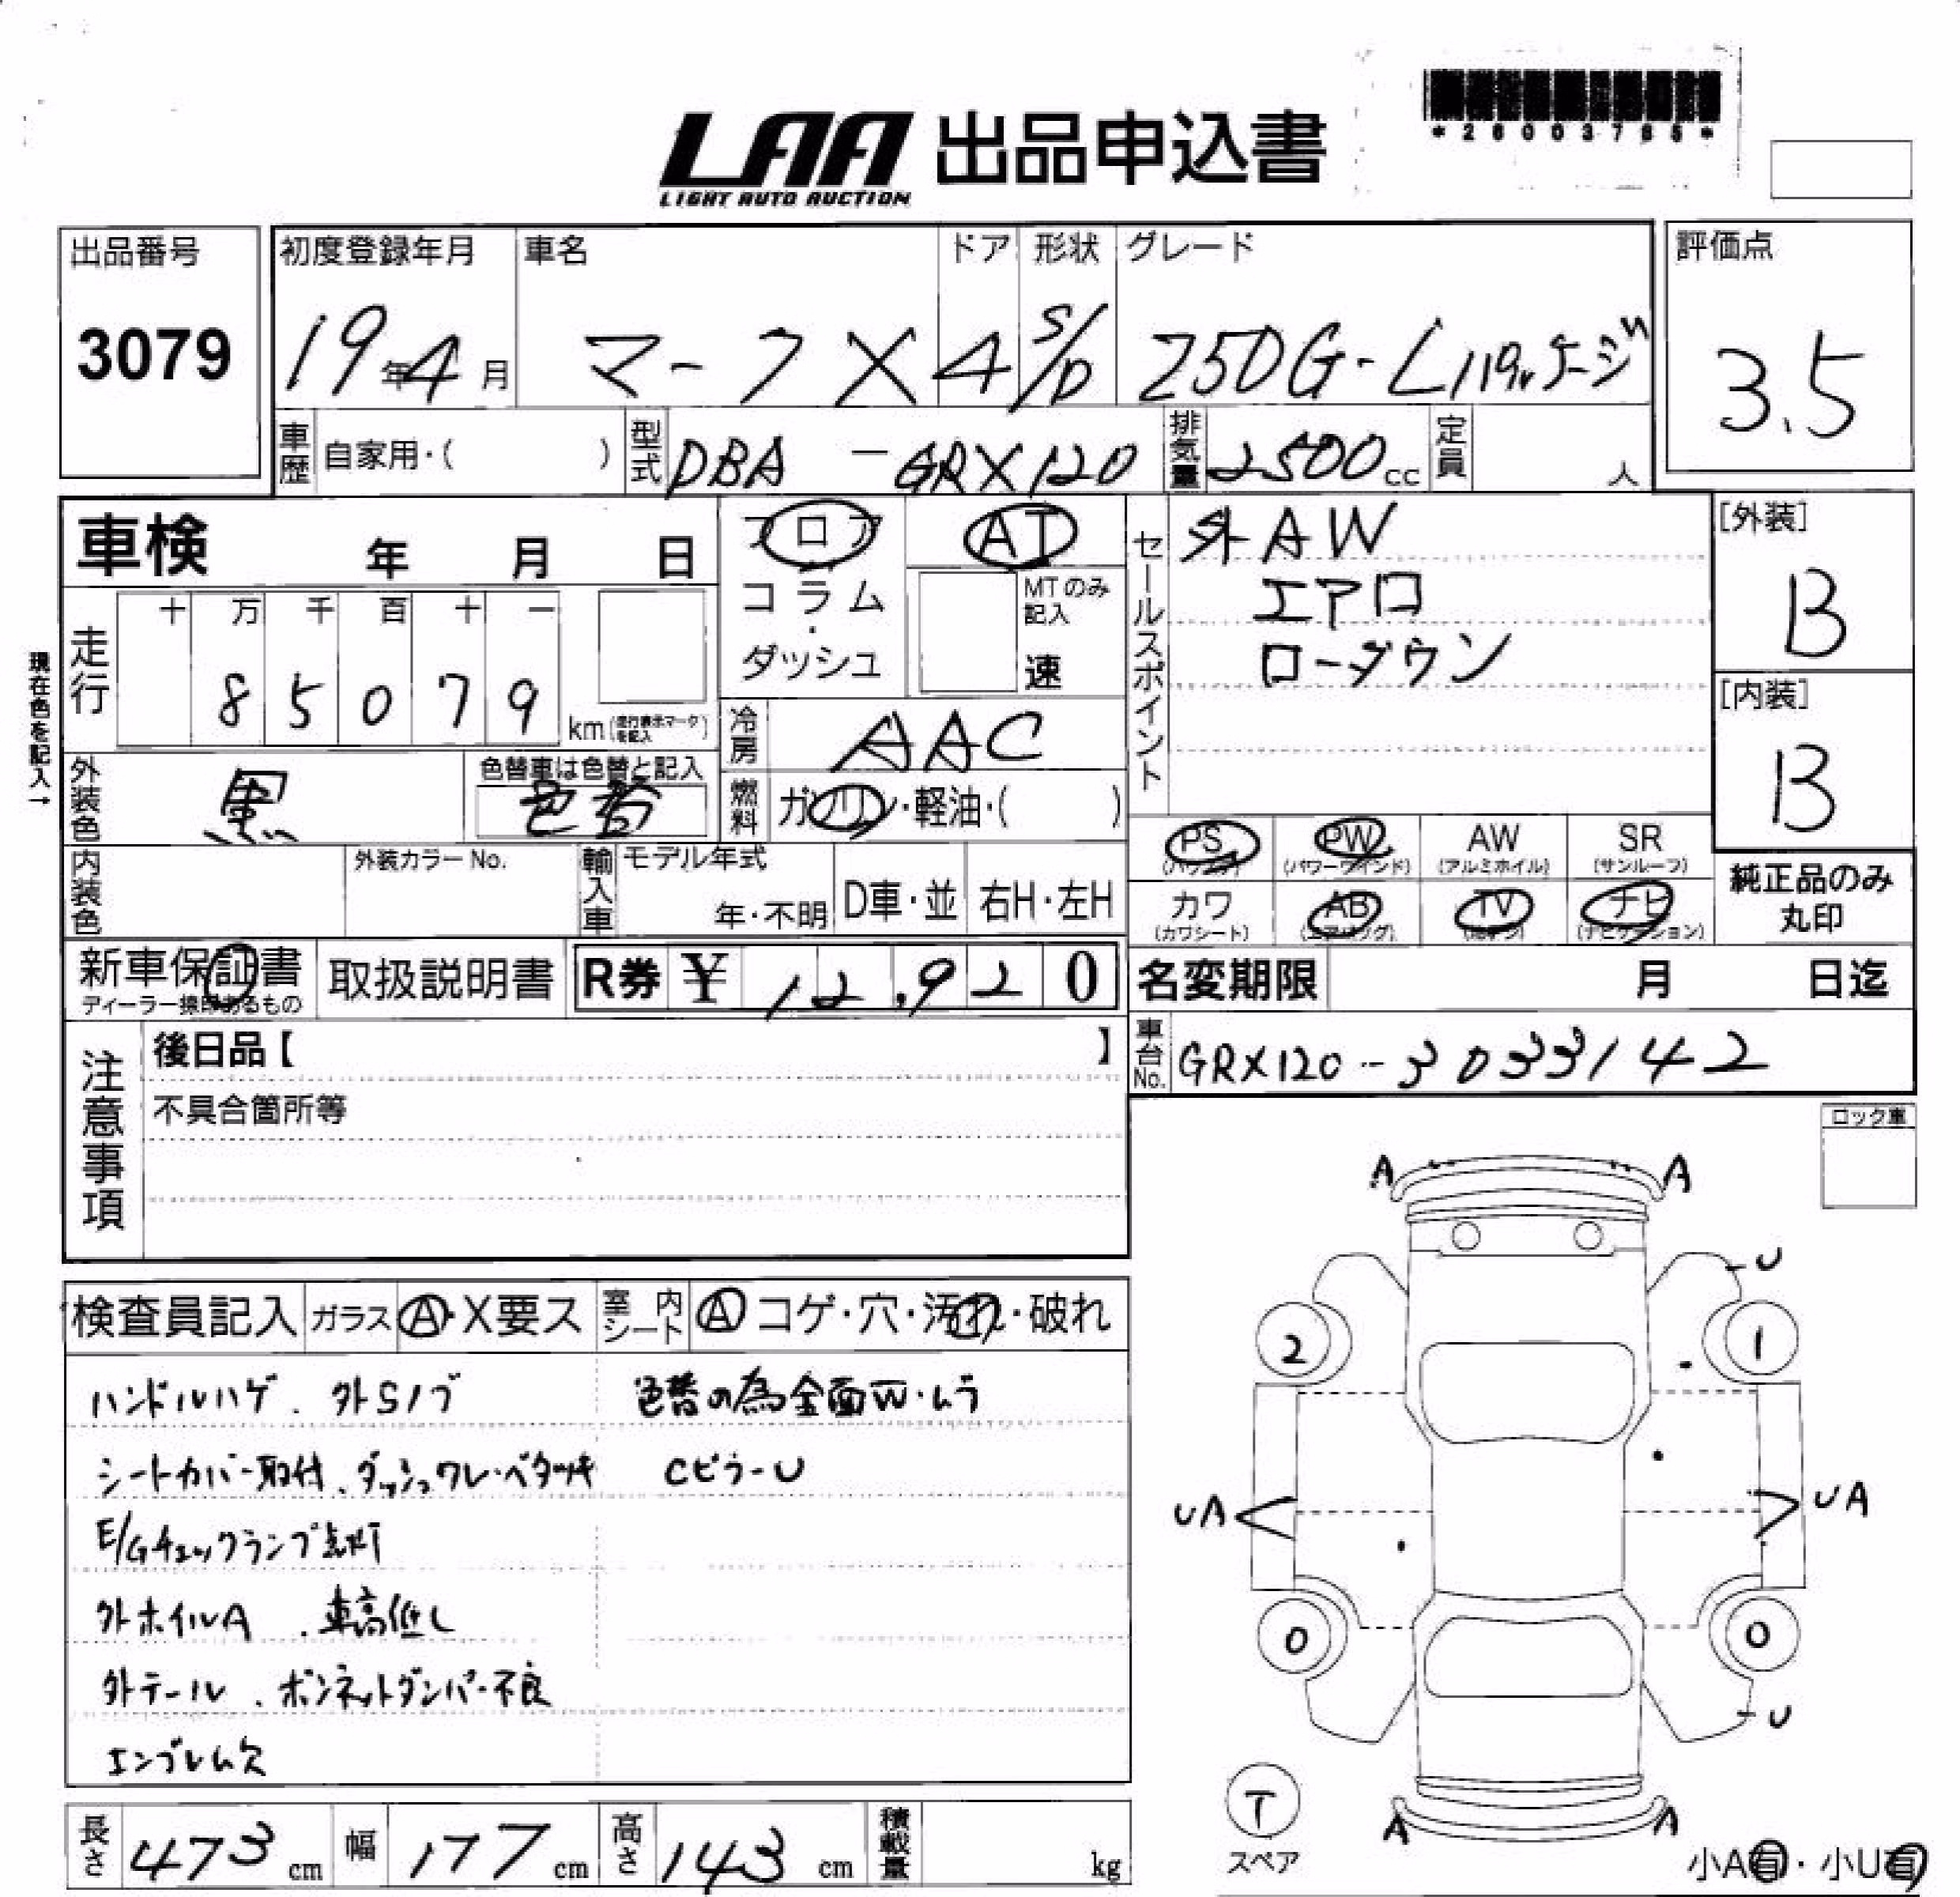 *26003785*
LAA 出品申込書
LIGHT AUTO AUCTION
出品番号 初度登録年月 車名 ドア 形状 グレード 評価点
3079 19年4月 マークX 4 S/D 250G-L 3.5
車歴 自家用・( ) 型式 DBA-GRX120 排気量 2500cc 定員 人
車検 年 月 日
フロア・コラム・ダッシュ
AT
MTのみ記入
速
セールスポイント
外AW
エアロ
ローダウン
[外装]
B
[内装]
B
現在色を記入→
走行 十 万 千 百 十 一
8 5 0 7 9 km (走行表示マークを記入)
冷房 AAC
外装色 黒 色替車は色替と記入 色替
燃料 ガソリン・軽油・( )
内装色 外装カラーNo. 輸入車 モデル年式 年・不明 D車・並 右H・左H
PS (パワステ) PW (パワーウインド) AW (アルミホイル) SR (サンルーフ)
カワ (カワシート) AB (エアバッグ) TV (地デジ) ナビ (ナビゲーション)
純正品のみ
丸印
新車保証書 ディーラー捺印あるもの 取扱説明書 R券 ¥ 12,920
名変期限 月 日迄
車台No. GRX120-3033142
注意事項
後日品【 】
不具合箇所等
ロック車
検査員記入 ガラス A・X要ス 室内シート A コゲ・穴・汚れ・破れ
ハンドルハゲ、外Sノブ 色替の為全面W・ムラ
シートカバー取付、ダッシュワレ・ベタツキ CピラーU
E/Gチェックランプ点灯
外ホイルA、車高低し
外テール、ボンネットダンパー不良
エンブレム欠
A A
U
2 1
UA UA
0 0
U
T
スペア
A A
小A有・小U有
長さ 473cm 幅 177cm 高さ 143cm 積載量 kg